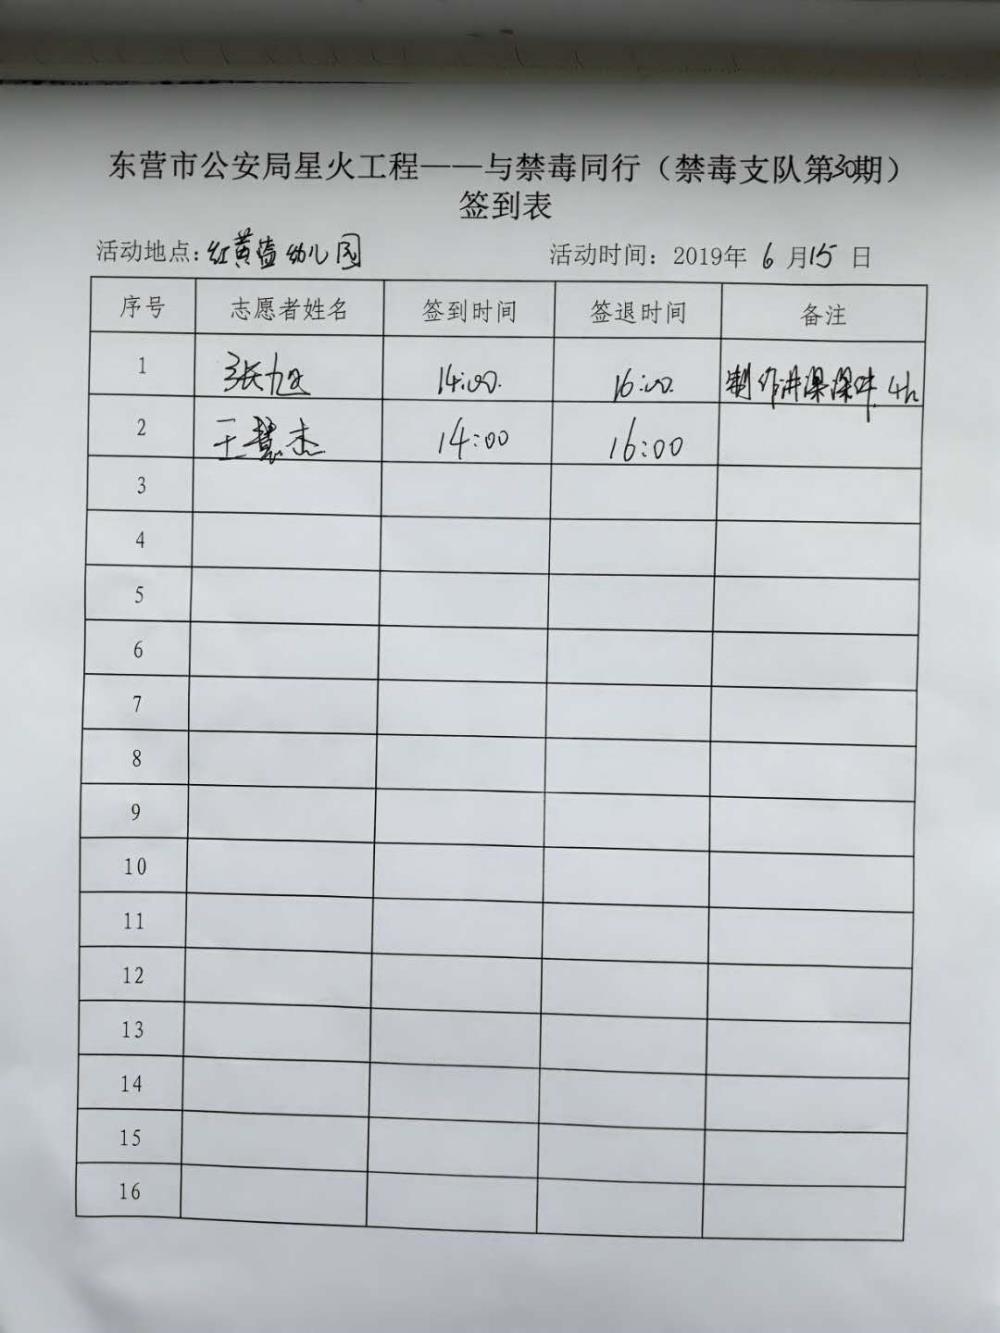 东营市公安局星火工程——与禁毒同行（禁毒支队第30期）
签到表
活动地点：红黄蓝幼儿园 活动时间：2019年 6 月 15 日
序号 志愿者姓名 签到时间 签退时间 备注
1 张旭 14:00. 16:00. 制作讲课课件. 4h
2 王慧杰 14:00 16:00
3
4
5
6
7
8
9
10
11
12
13
14
15
16